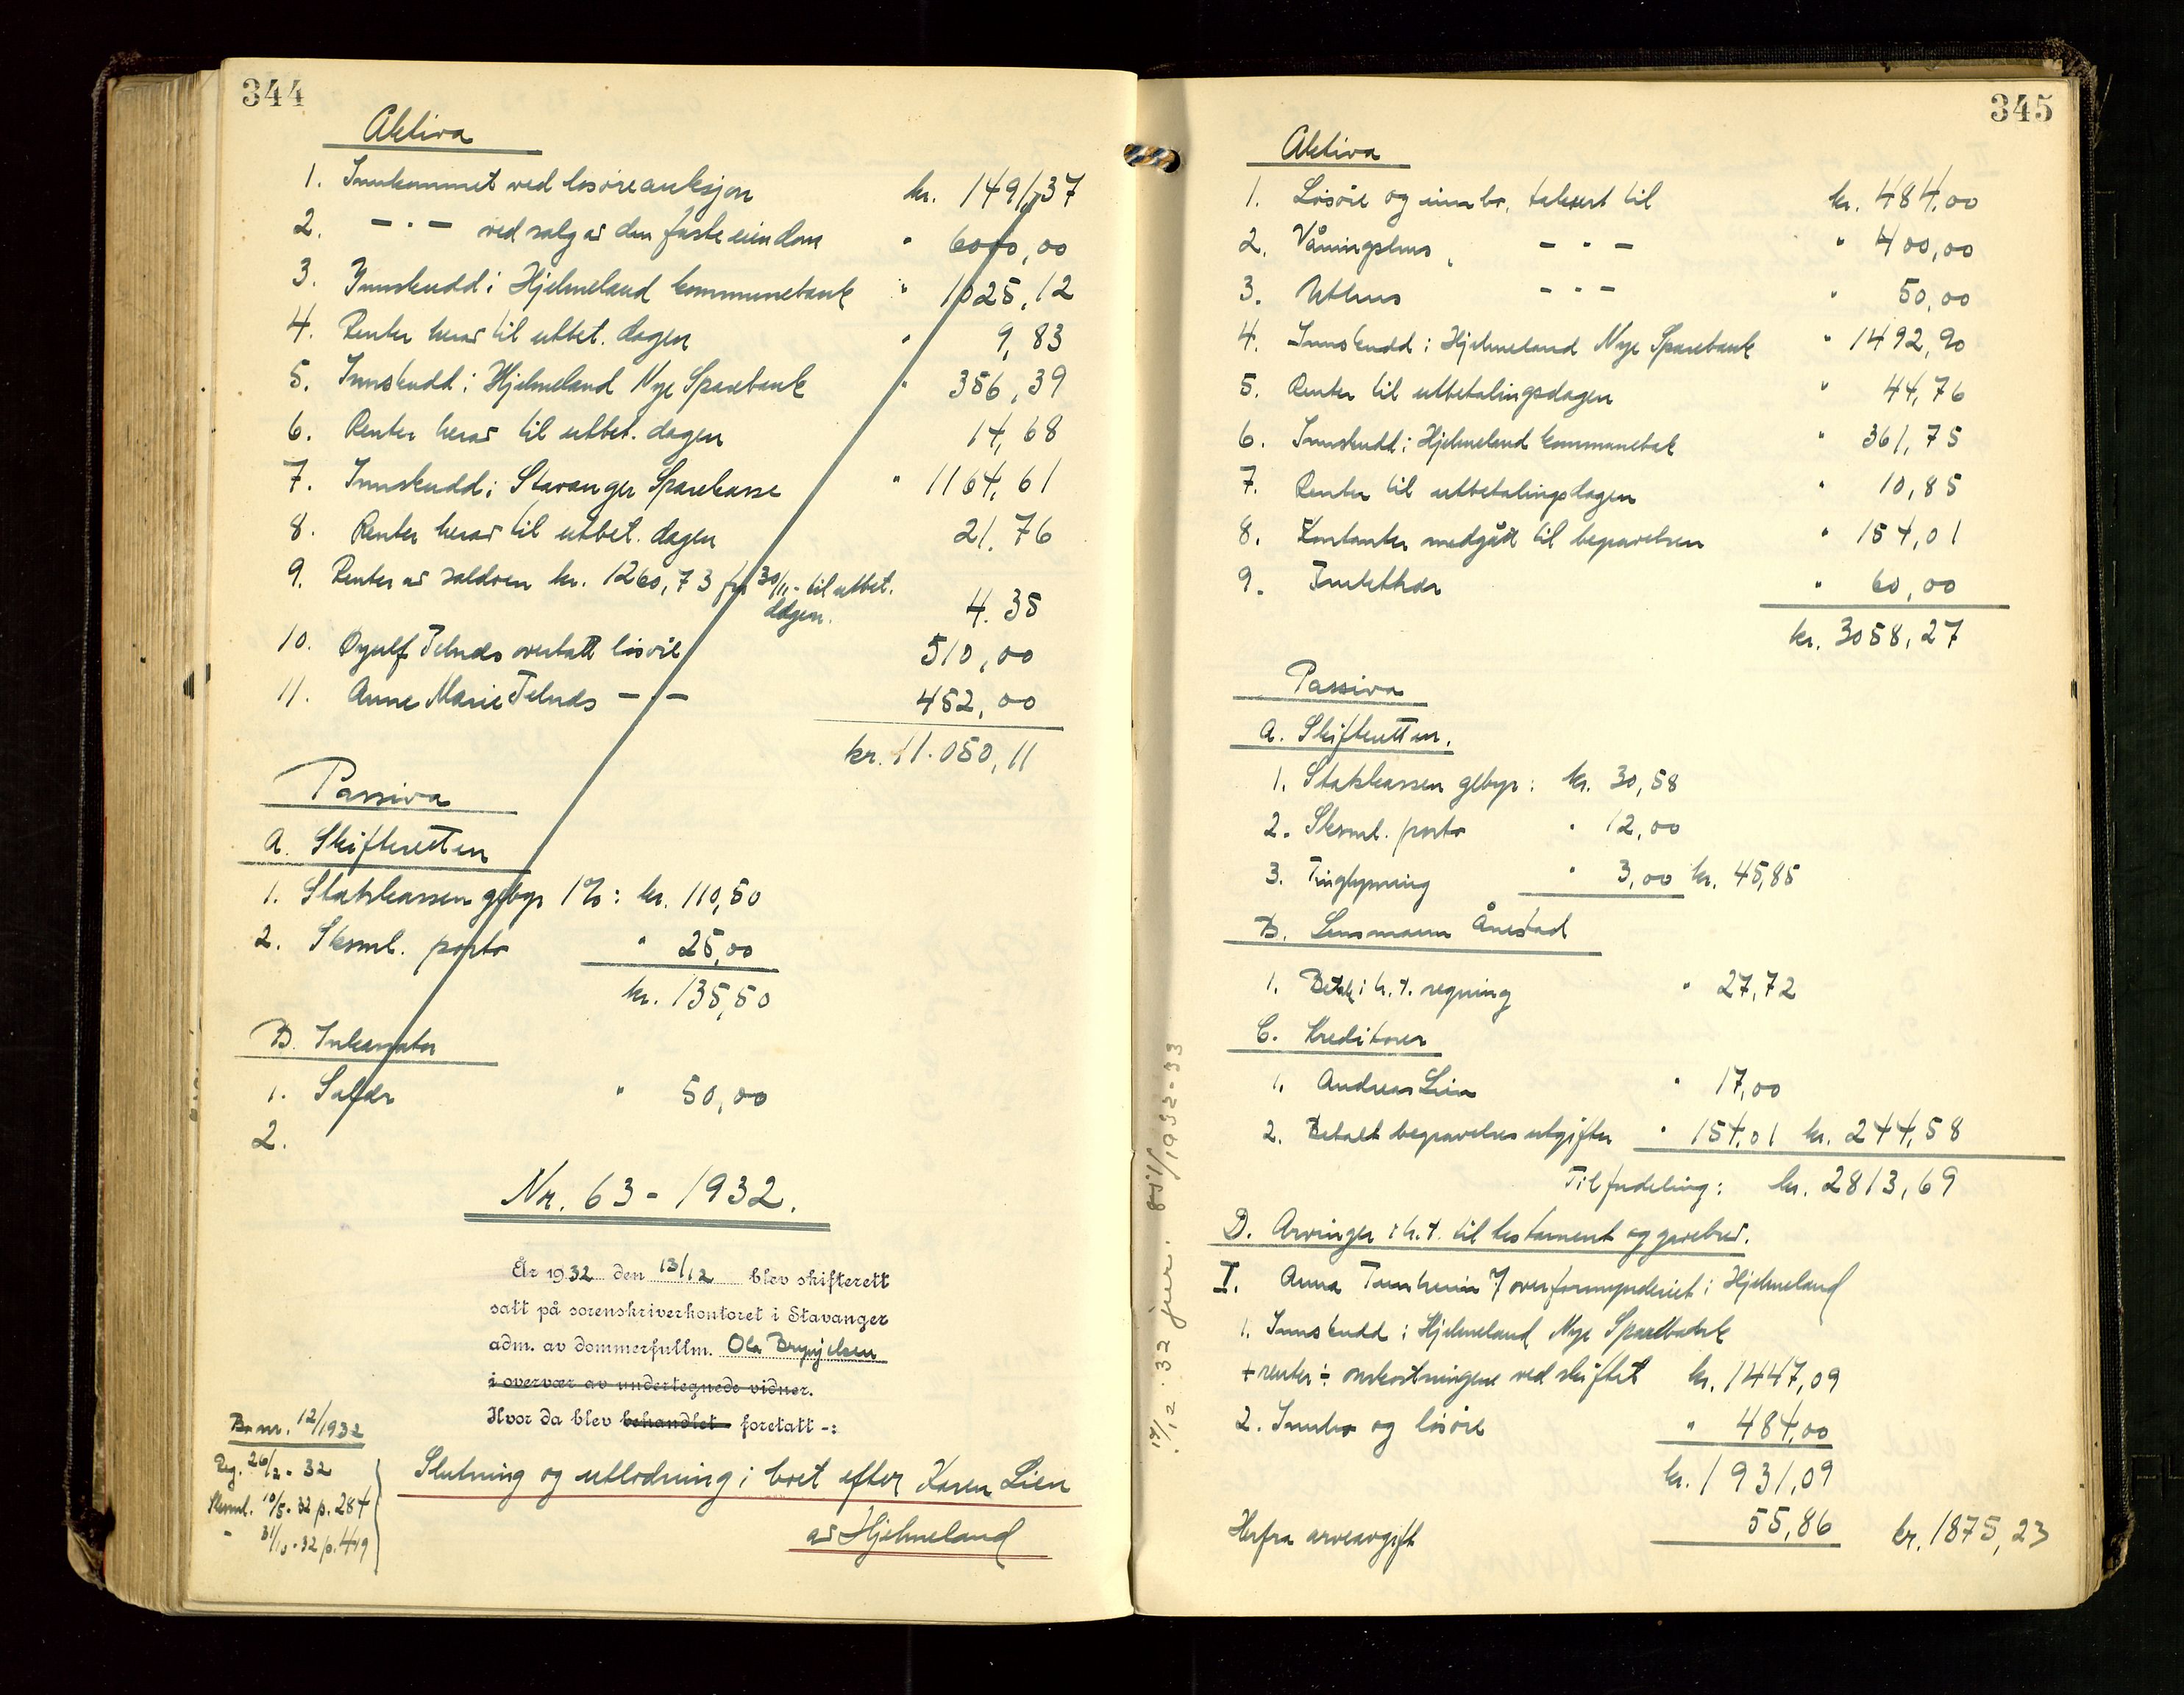 344
Aktiva
1. Innkommet ved løsøreauksjon kr. 1491,37
2. — " — ved salg av den faste eiendom " 6000,00
3. Innskudd i Hjelmeland kommunebank " 1025,12
4. Renter herav til utbet. dagen " 9,83
5. Innskudd i Hjelmeland Nye Sparebank " 356,39
6. Renter herav til utbet. dagen 14,68
7. Innskudd i Stavanger Sparekasse " 1164,61
8. Renter herav til utbet. dagen 21.76
9. Renter av saldoen kr. 1260,73 fra 30/11 - til utbet.
dagen. 4.35
10. Øyulf Telnes overtatt løsøre 510,00
11. Anne Marie Telnes — " — 452,00
kr. 11.050,11
Passiva
A. Skifteretten
1. Statskassen gebyr 1%: kr. 110,50
2. Skrml. porto " 25,00
kr. 135,50
B. Inkassator
1. Salær " 50,00
2.
Nr. 63 - 1932.
År 1932 den 13/12 blev skifterett
satt på sorenskriverkontoret i Stavanger
adm. av dommerfullm. Ola Brynjelsen
i overvær av undertegnede vidner.
Hvor da blev behandlet foretatt -:
Bo nr. 12/1932
Reg. 26/2 - 32
Skrml. 10/5 - 32 p. 284
" 31/10 - 32 p. 449
Slutning og utlodning i boet efter Karen Lien
av Hjelmeland
345
Aktiva
1. Løsøre og innbo, taksert til kr. 484,00
2. Våningshus, — " — " 400,00
3. Uthus — " — " 50,00
4. Innskudd i Hjelmeland Nye Sparebank " 1492,90
5. Renter til utbetalingsdagen " 44,76
6. Innskudd i Hjelmeland kommunebk " 361,75
7. Renter til utbetalingsdagen " 10,85
8. Kontanter medgått til begravelsen " 154,01
9. " 60,00
kr. 3058,27
Passiva
A. Skifteretten.
1. Statskassen gebyr: kr. 30,58
2. Skrml. porto " 12,00
3. Tinglysning " 3,00 kr. 45,85
B. Lensmann Ånestad
1. Betalt i h. t. regning " 27,72
C. Kreditorer
1. Andreas Lien " 17,00
2. Betalt begravelsesutgifter " 154,01 kr. 244,58
Til fordeling: kr. 2813,69
D. Arvinger i h. t. til testament og gavebrev.
I. Anna Tunheim % overformynderiet i Hjelmeland
1. Innskudd i Hjelmeland Nye Sparebank
+ renter ÷ omkostningene ved skiftet kr. 1447,09
2. Innbo og løsøre " 484,00
kr. 1931,09
Herfra arveavgift 55,86 kr. 1875,23
19/12 .32 jnr. 851/1932-33